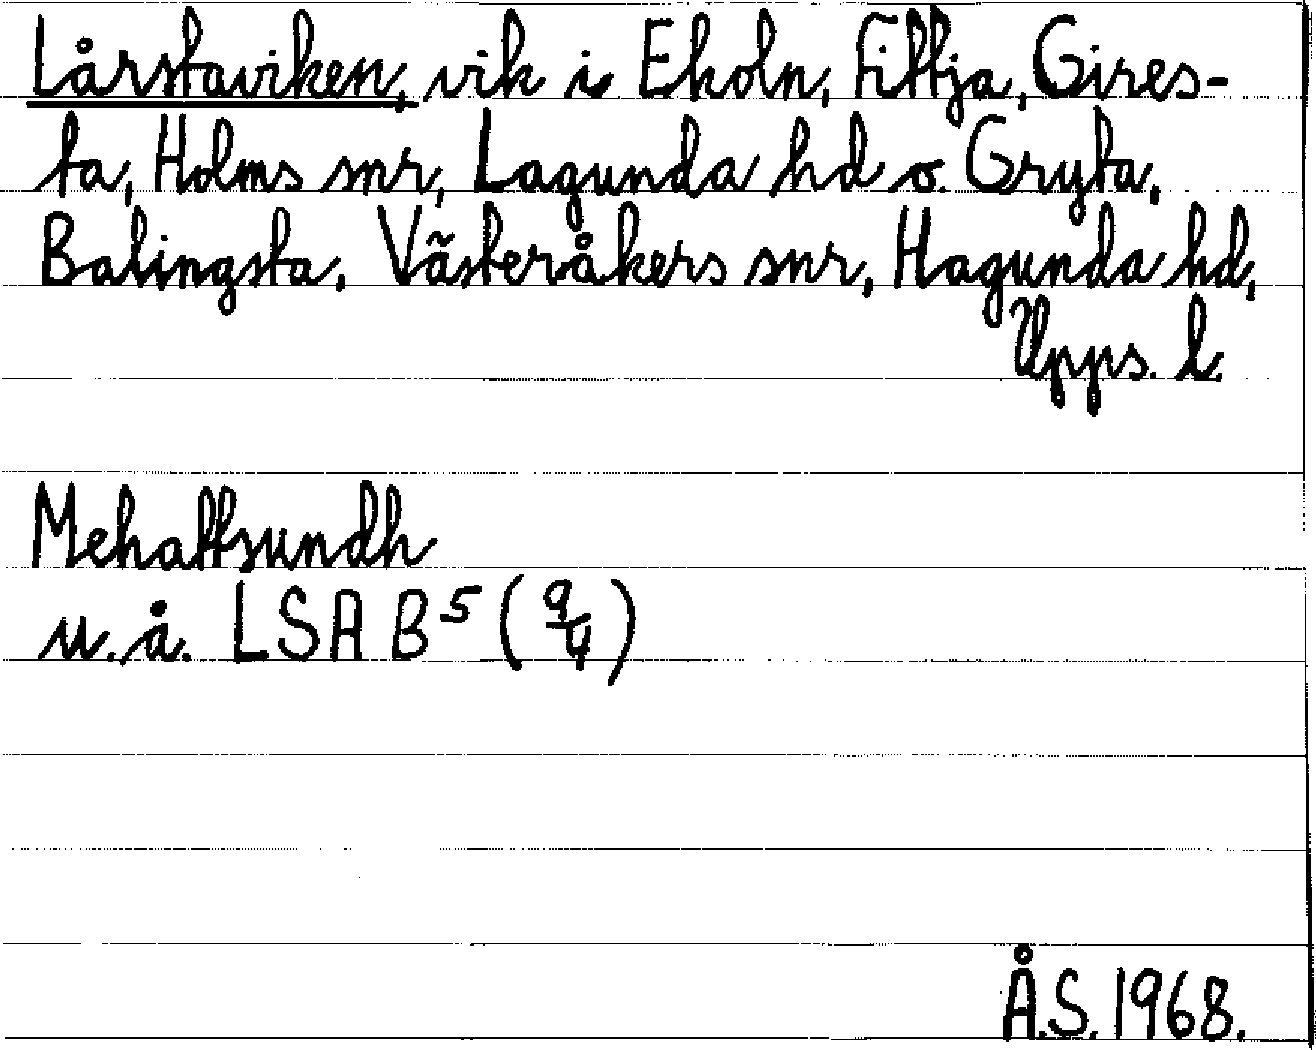 Lårstaviken, vik i Ekoln, Fittja, Gires-
ta, Holms snr, Lagunda hd o. Gryta,
Balingsta, Västeråkers snr, Hagunda hd,
Upps. l.
Mehaffsundh
u.å. LSA B⁵ (9/4)
Å.S. 1968.